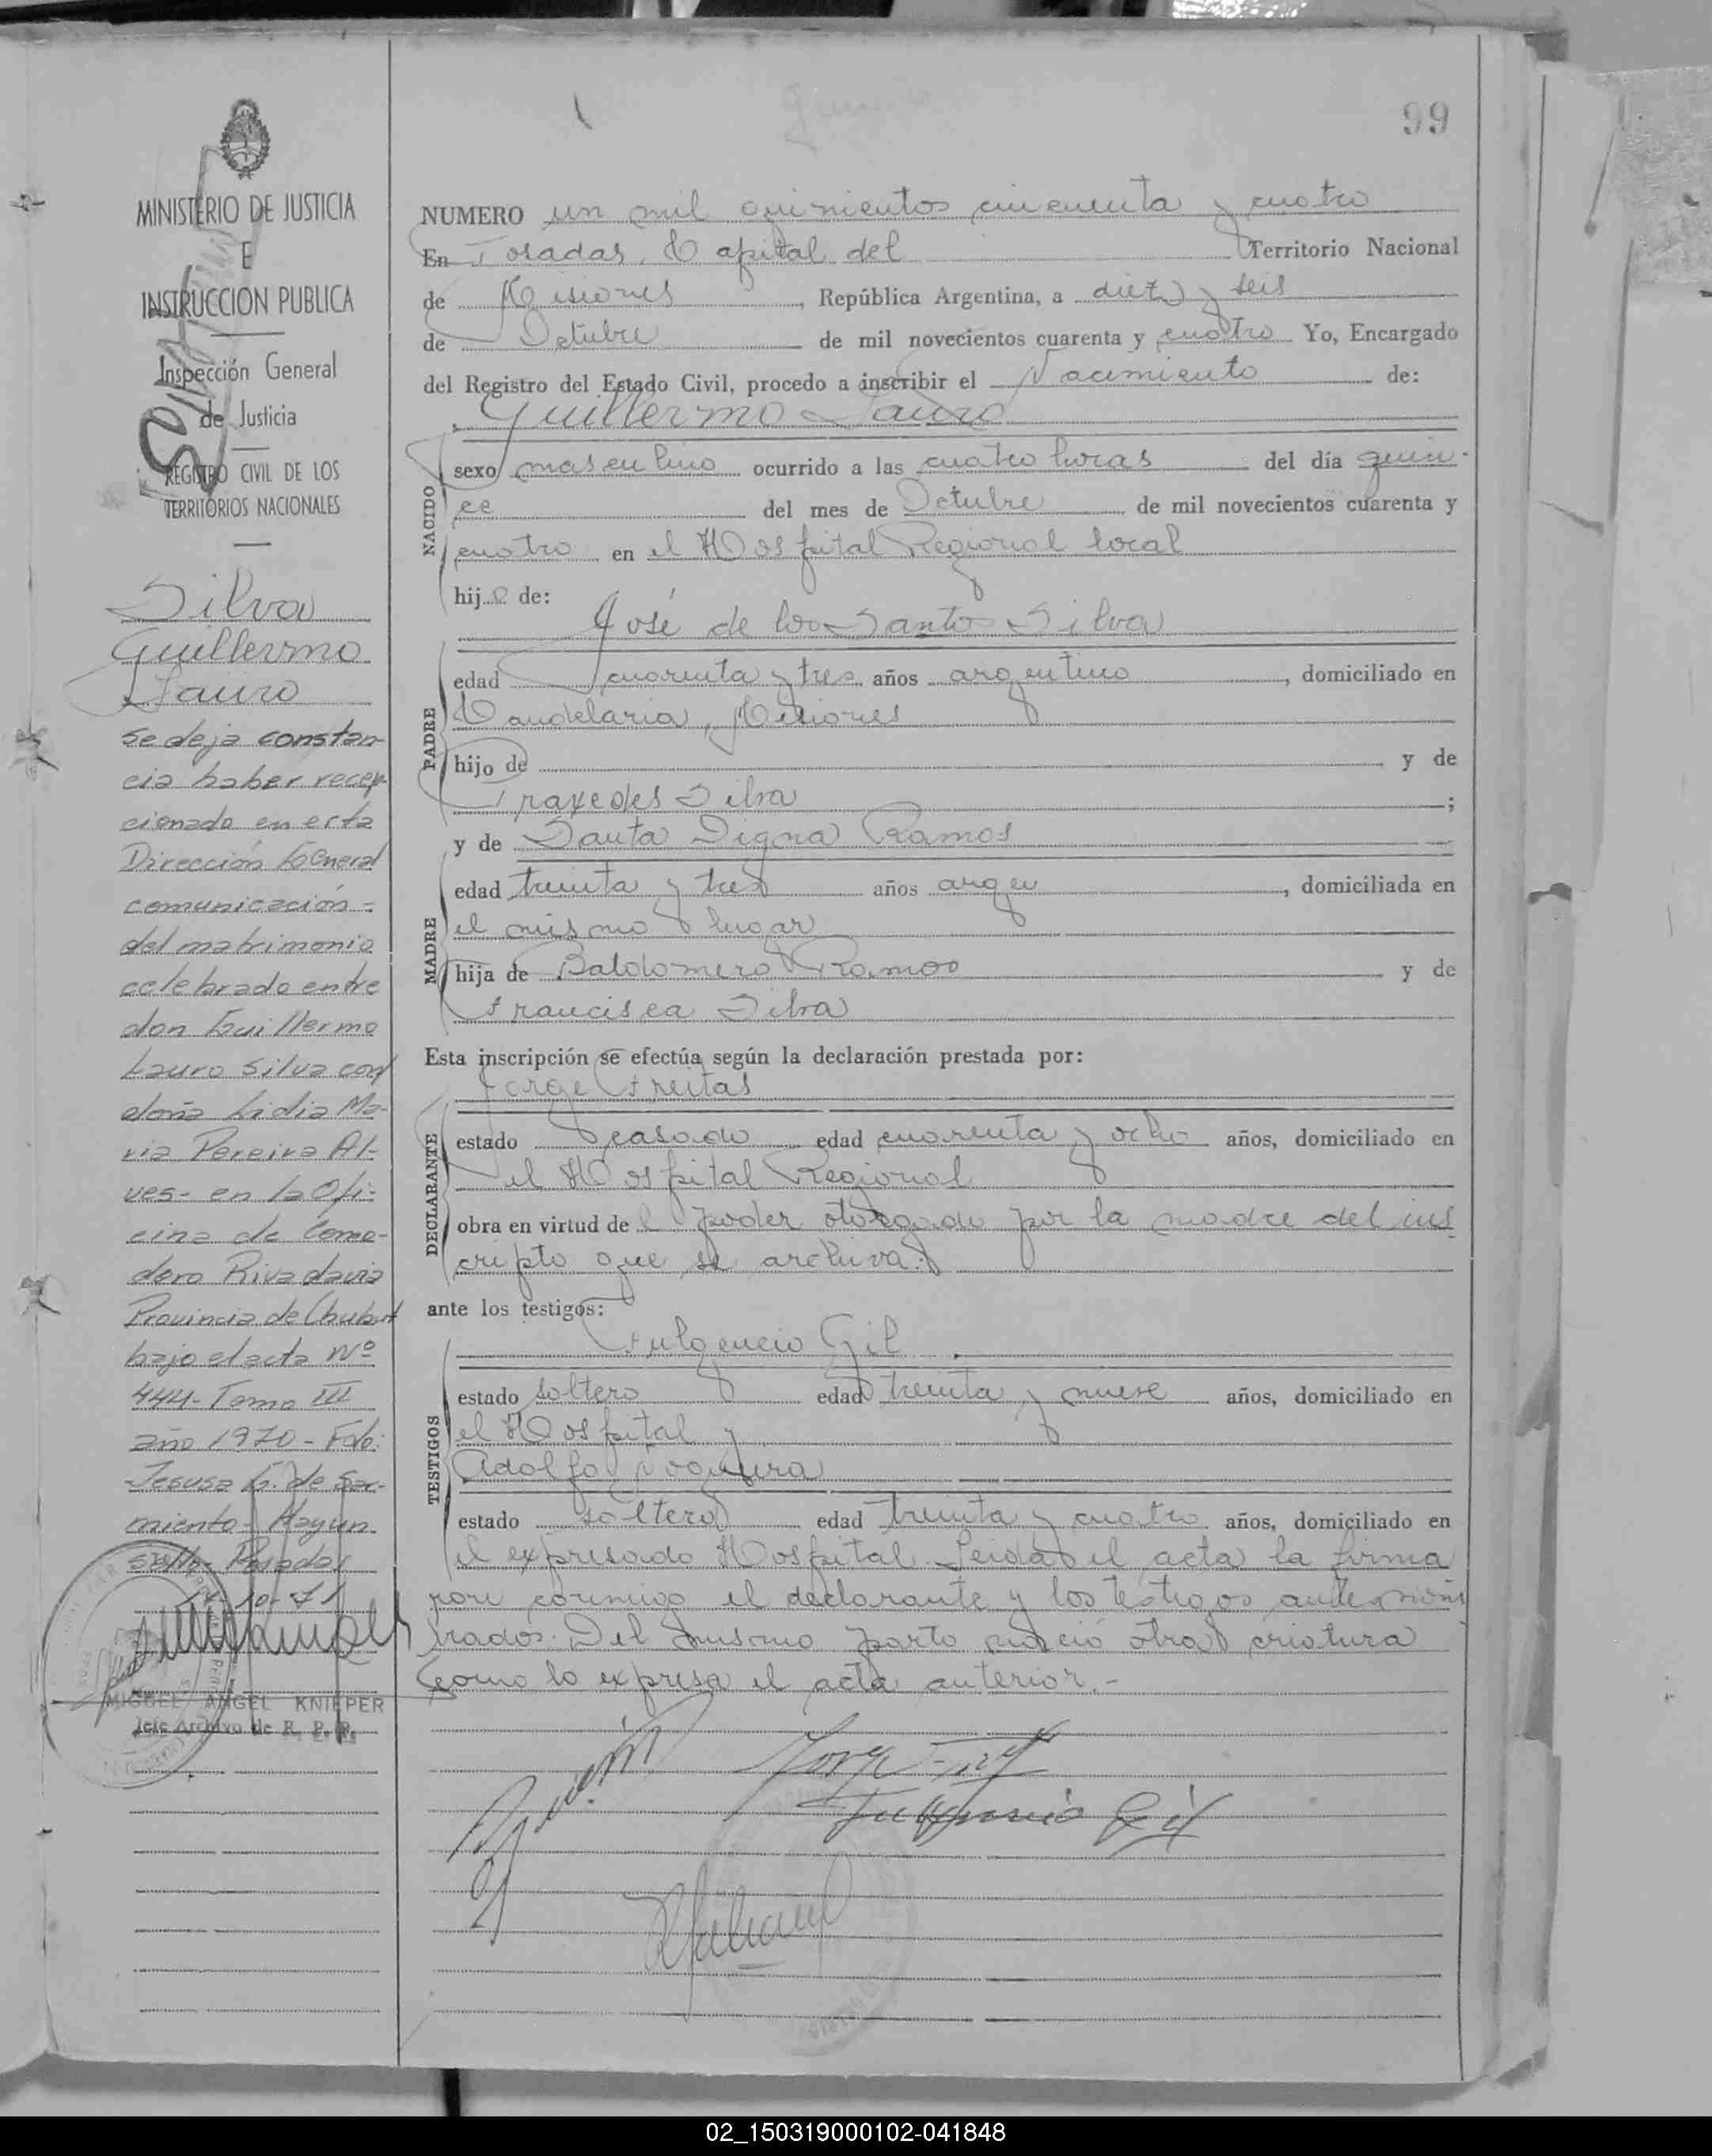 99
MINISTERIO DE JUSTICIA
E
INSTRUCCION PUBLICA
Inspección General
de Justicia
REGISTRO CIVIL DE LOS
TERRITORIOS NACIONALES
Silva
Guillermo
Lauro
Se deja constan-
cia haber recep-
cionado en esta
Dirección General
comunicación -
del matrimonio
celebrado entre
don Guillermo
Lauro Silva con
doña Lidia Ma-
ria Pereira Al-
ves- en la Ofi-
cina de Como-
doro Rivadavia
Provincia de Chubut
bajo el acta Nº
444- Tomo III
año 1970 - Fdo:
Jesusa G. de Sar-
miento - Hay un
sello- Posadas
10-71
MIGUEL ANGEL KNIEPER
Jefe Archivo de R. P. P.
NUMERO un mil quinientos cincuenta y cuatro
En Posadas, Capital del Territorio Nacional
de Misiones, República Argentina, a diez y seis
de Octubre de mil novecientos cuarenta y cuatro Yo, Encargado
del Registro del Estado Civil, procedo a inscribir el Nacimiento de:
Guillermo Lauro
NACIDO
sexo masculino ocurrido a las cuatro horas del día quin-
ce del mes de Octubre de mil novecientos cuarenta y
cuatro en el Hospital Regional local
hijo de:
José de los Santos Silva
PADRE
edad cuarenta y tres años argentino, domiciliado en
Candelaria, Misiones
hijo de y de
Praxedes Silva;
y de Santa Digna Ramos
MADRE
edad treinta y tres años argen, domiciliada en
el mismo lugar
hija de Baldomero Ramos y de
Francisca Silva
Esta inscripción se efectúa según la declaración prestada por:
Jorge Freitas
DECLARANTE
estado casado edad cuarenta y ocho años, domiciliado en
el Hospital Regional
obra en virtud de l poder otorgado por la madre del ins
cripto que se archiva.
ante los testigos:
Fulgencio Gil
TESTIGOS
estado soltero edad treinta y nueve años, domiciliado en
el Hospital y
Adolfo Noguera
estado soltero edad treinta y cuatro años, domiciliado en
el expresado Hospital. Leida el acta la firma
ron conmigo el declarante y los testigos
trados. Del mismo parto nació otra criatura
como lo expresa el acta anterior.-
Fulgencio Gil
02_150319000102-041848